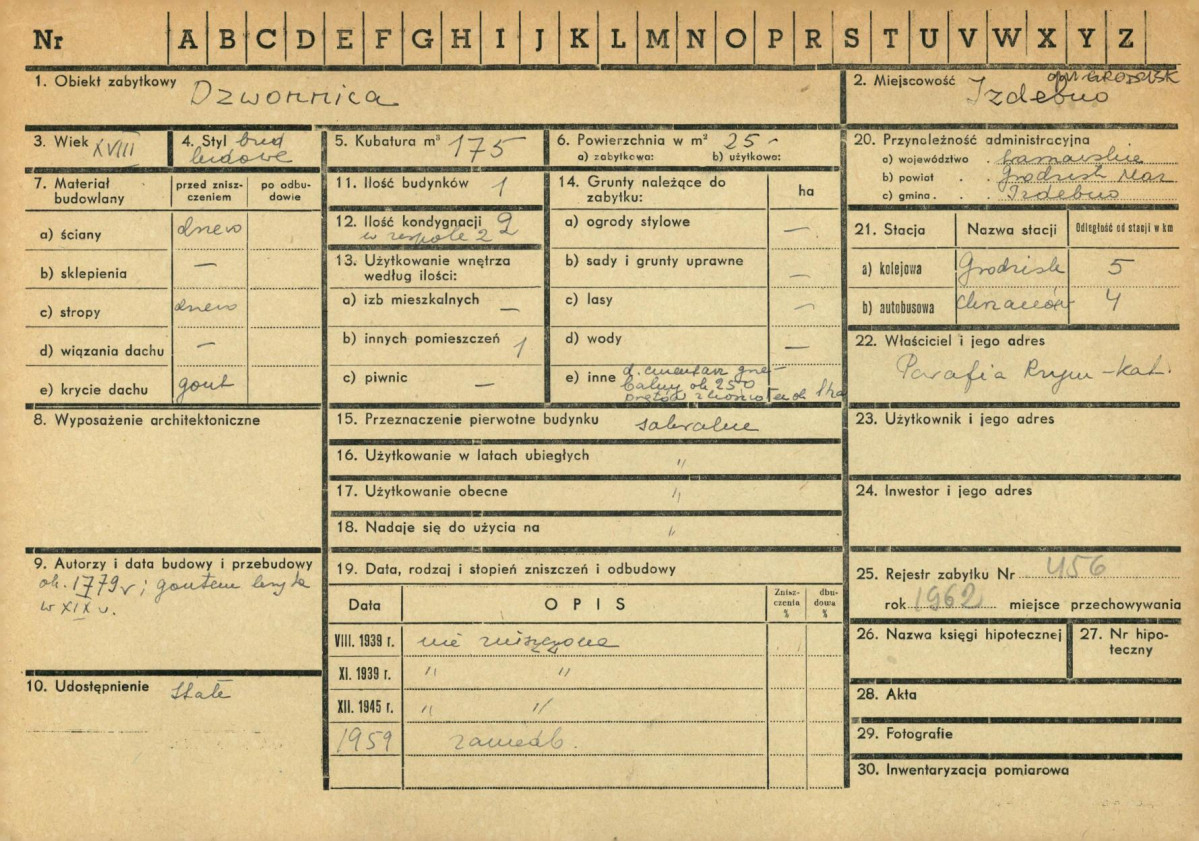 Nr A B C D E F G H I J K L M N O P R S T U V W X Y Z
1. Obiekt zabytkowy Dzwonnica
2. Miejscowość Izdebno
3. Wiek XVIII
4. Styl bud
ludowe
5. Kubatura m³ 175
6. Powierzchnia w m² 25 -
a) zabytkowa: b) użytkowa:
7. Materiał budowlany
przed zniszczeniem
po odbudowie
a) ściany drewn
b) sklepienia —
c) stropy drewn
d) wiązania dachu —
e) krycie dachu gont
8. Wyposażenie architektoniczne
9. Autorzy i data budowy i przebudowy
ok. 1779 r; gontem kryta
w XIX w.
10. Udostępnienie stałe
11. Ilość budynków 1
12. Ilość kondygnacji 2
w zespole 2
13. Użytkowanie wnętrza
według ilości:
a) izb mieszkalnych —
b) innych pomieszczeń 1
c) piwnic —
14. Grunty należące do
zabytku:
ha
a) ogrody stylowe —
b) sady i grunty uprawne —
c) lasy —
d) wody —
e) inne d. cmentarz grze-
balny ok 250
15. Przeznaczenie pierwotne budynku sakralne
16. Użytkowanie w latach ubiegłych "
17. Użytkowanie obecne "
18. Nadaje się do użycia na "
19. Data, rodzaj i stopień zniszczeń i odbudowy
Data OPIS Zniszczenia % dbudowa %
VIII. 1939 r. nie zniszczona
XI. 1939 r. " "
XII. 1945 r. " "
1959 zaniedb.
20. Przynależność administracyjna
a) województwo . warszawskie
b) powiat . . Grodzisk Maz
c) gmina . . . Izdebno
21. Stacja Nazwa stacji Odległość od stacji w km
a) kolejowa Grodzisk 5
b) autobusowa Chrzanów 4
22. Właściciel i jego adres
Parafia Rzym-kat.
23. Użytkownik i jego adres
24. Inwestor i jego adres
25. Rejestr zabytku Nr 456
rok 1962 miejsce przechowywania
26. Nazwa księgi hipotecznej
27. Nr hipoteczny
28. Akta
29. Fotografie
30. Inwentaryzacja pomiarowa